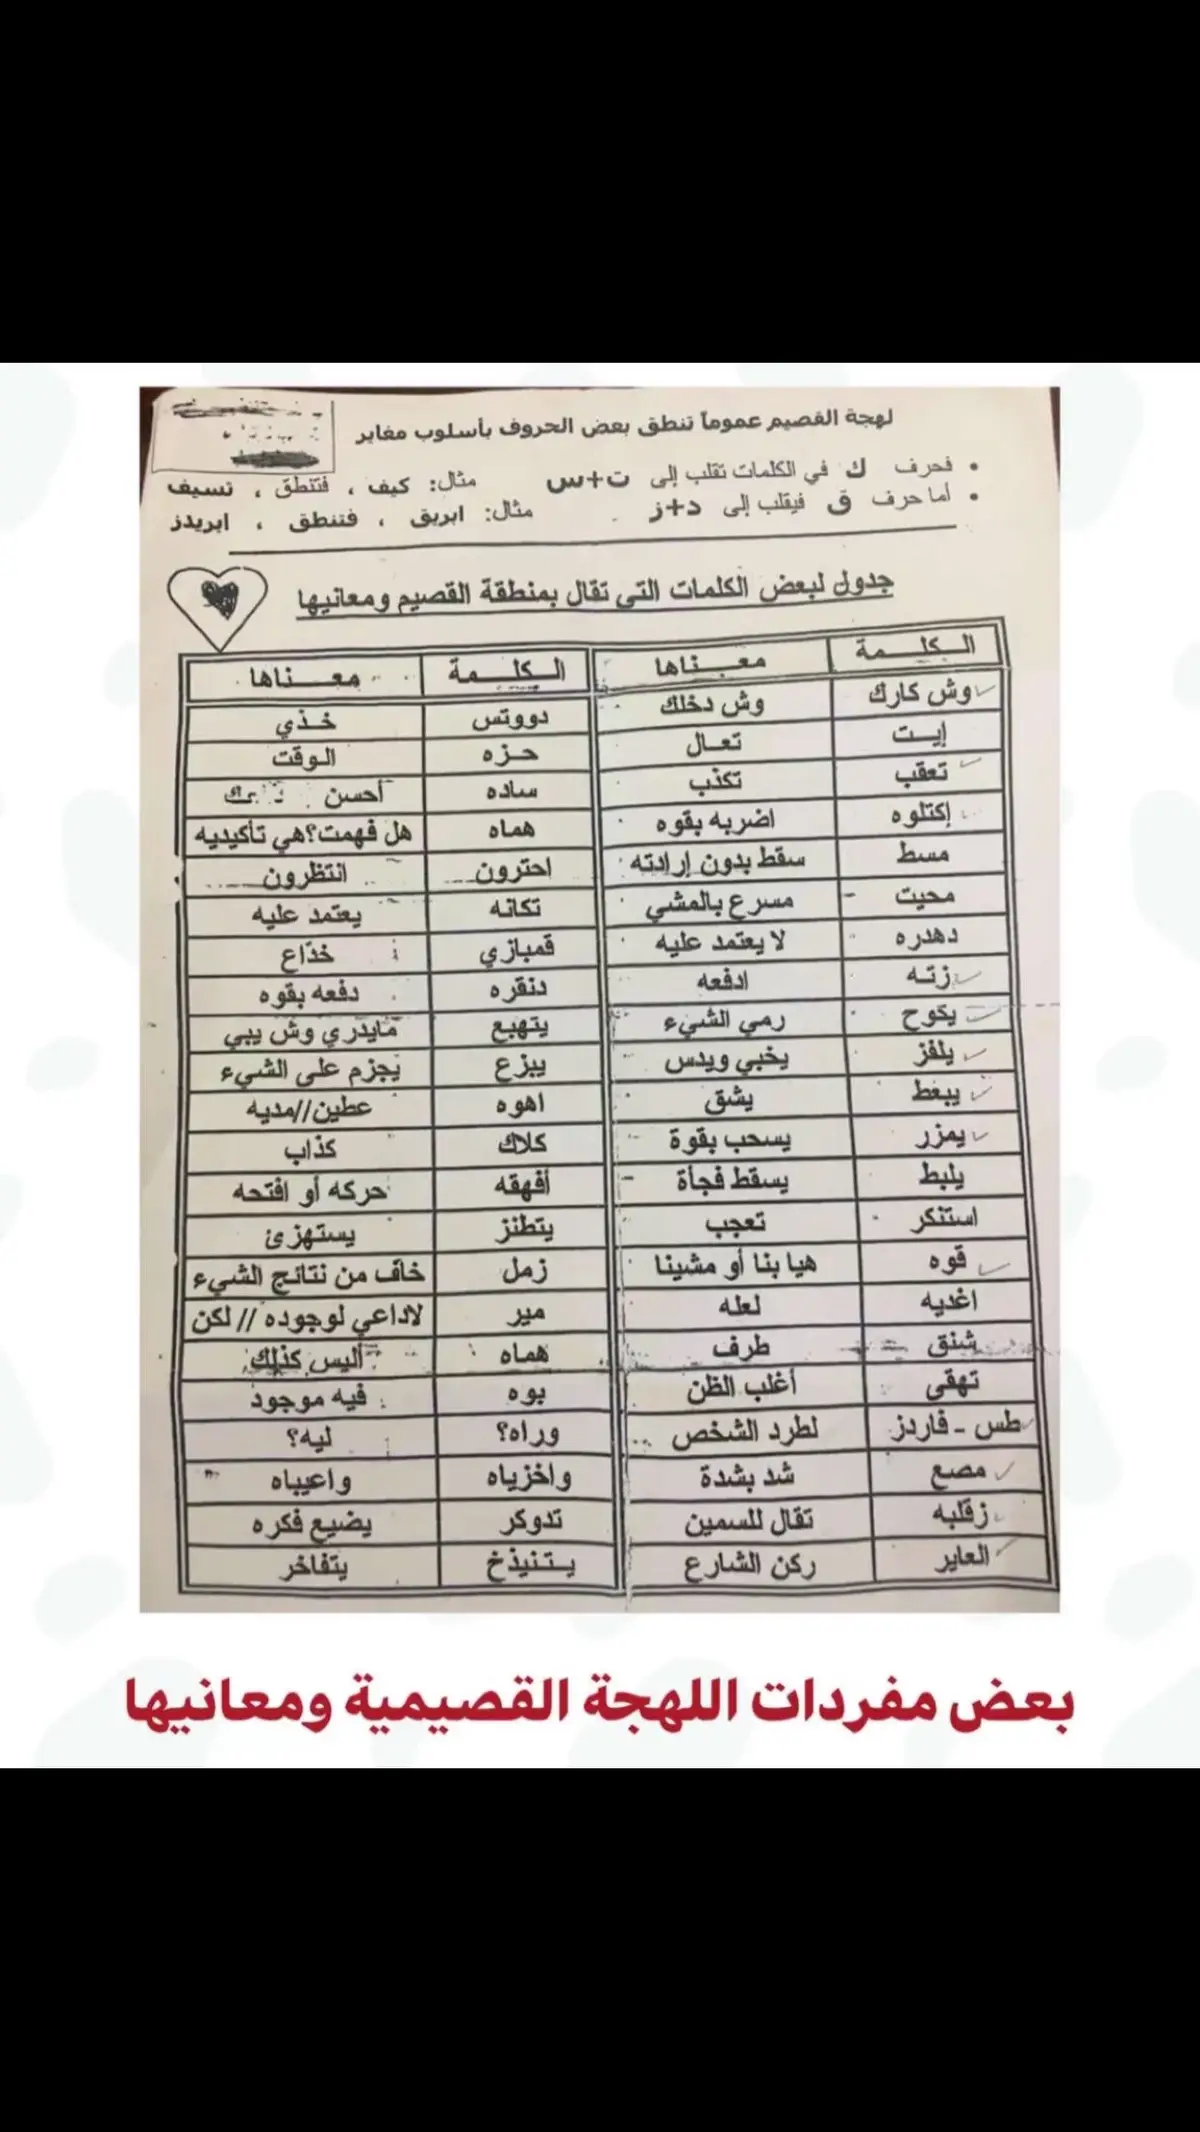 لهجة القصيم عموماً تنطق بعض الحروف بأسلوب مغاير
• فحرف ك في الكلمات تقلب إلى ت+س مثال: كيف ، فتنطق ، تسيف
• أما حرف ق فيقلب إلى د+ز مثال: ابريق ، فتنطق ، ابريدز
جدول لبعض الكلمات التي تقال بمنطقة القصيم ومعانيها
الكلمة معناها الكلمة معناها
وش كارك وش دخلك دووتس خذي
إيت تعال حزه الوقت
تعقب تكذب ساده أحسن
إكتلوه اضربه بقوه هماه هل فهمت؟هي تأكيديه
مسط سقط بدون إرادته احترون انتظرون
محيت مسرع بالمشي تكانه يعتمد عليه
دهدره لا يعتمد عليه قمبازي خدّاع
زته ادفعه دنقره دفعه بقوه
يكوح رمي الشيء يتهبع مايدري وش يبي
يلفز يخبي ويدس يبزع يجزم على الشيء
يبعط يشق اهوه عطين//مديه
يمزر يسحب بقوة كلاك كذاب
يلبط يسقط فجأة أفهقه حركه أو افتحه
استنكر تعجب يتطنز يستهزئ
قوه هيا بنا أو مشينا زمل خاف من نتائج الشيء
اغديه لعله مير لاداعي لوجوده // لكن
شنق طرف هماه أليس كذلك
تهقى أغلب الظن بوه فيه موجود
طس - فاردز لطرد الشخص وراه؟ ليه؟
مصع شد بشدة واخزياه واعيباه
زقلبه تقال للسمين تدوكر يضيع فكره
العاير ركن الشارع يتنيذخ يتفاخر
بعض مفردات اللهجة القصيمية ومعانيها